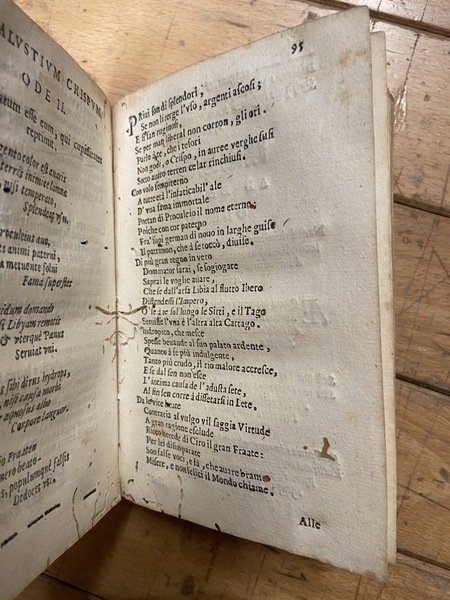 ALVSTIVM CRISPVM
ODE II.
reprimit.
temperato,
Splendeat vsu.
Proculeius
animi paterni,
metuente solui
Fama superstes
domando
Libyam remotis
& vterque Pœnus
Seruiat vni.
sibi dirus hydrops,
nisi causa morbi
Corpore languor.
Phraaten
numero beato-
Populumque falsis
Dedocet vti.
95
PRiui son di splendori,
Se non li terge l'vso, argenti ascosi;
E si fan ruginosi,
Se per man liberal non corron, gli ori.
che i tesori
Non godi, o Crispo, in auree verghe fusi
Sotto auaro terren celar rinchiusi.
Con volo sempiterno
A tutte età l'infaticabil' ale
D' vna fama immortale
Portan di Proculeio il nome eterno;
Poiche con cor paterno
Fra' suoi german di nouo in larghe guise
Il patrimon, che à se toccò, diuise.
Di più gran regno in vero
Dominator sarai, se sogiogare
Saprai le voglie auare,
Che se dall'arsa Libia al flutto Ibero
Distendessi l'Impero,
O se à te sol lungo le Sirti, e il Tago
Seruisse l'vna è l'altra alta Cartago.
hidropico, che mesce
Spesse beuande al suo palato ardente,
Quanto à se più indulgente,
Tanto più crudo, il rio malore accresce,
E se dal sen non esce
L' intima causa de l' adusta sete,
Al fin sen corre à dissetarsi in Lete.
Da le vite beate
Contraria al vulgo vil saggia Virtude
A gran ragione esclude
Ricco herede di Ciro il gran Fraate:
Per lei disimparate
Son false voci, e fà, che auare brame
Misere, e non felici il Mondo chiame.
Alle